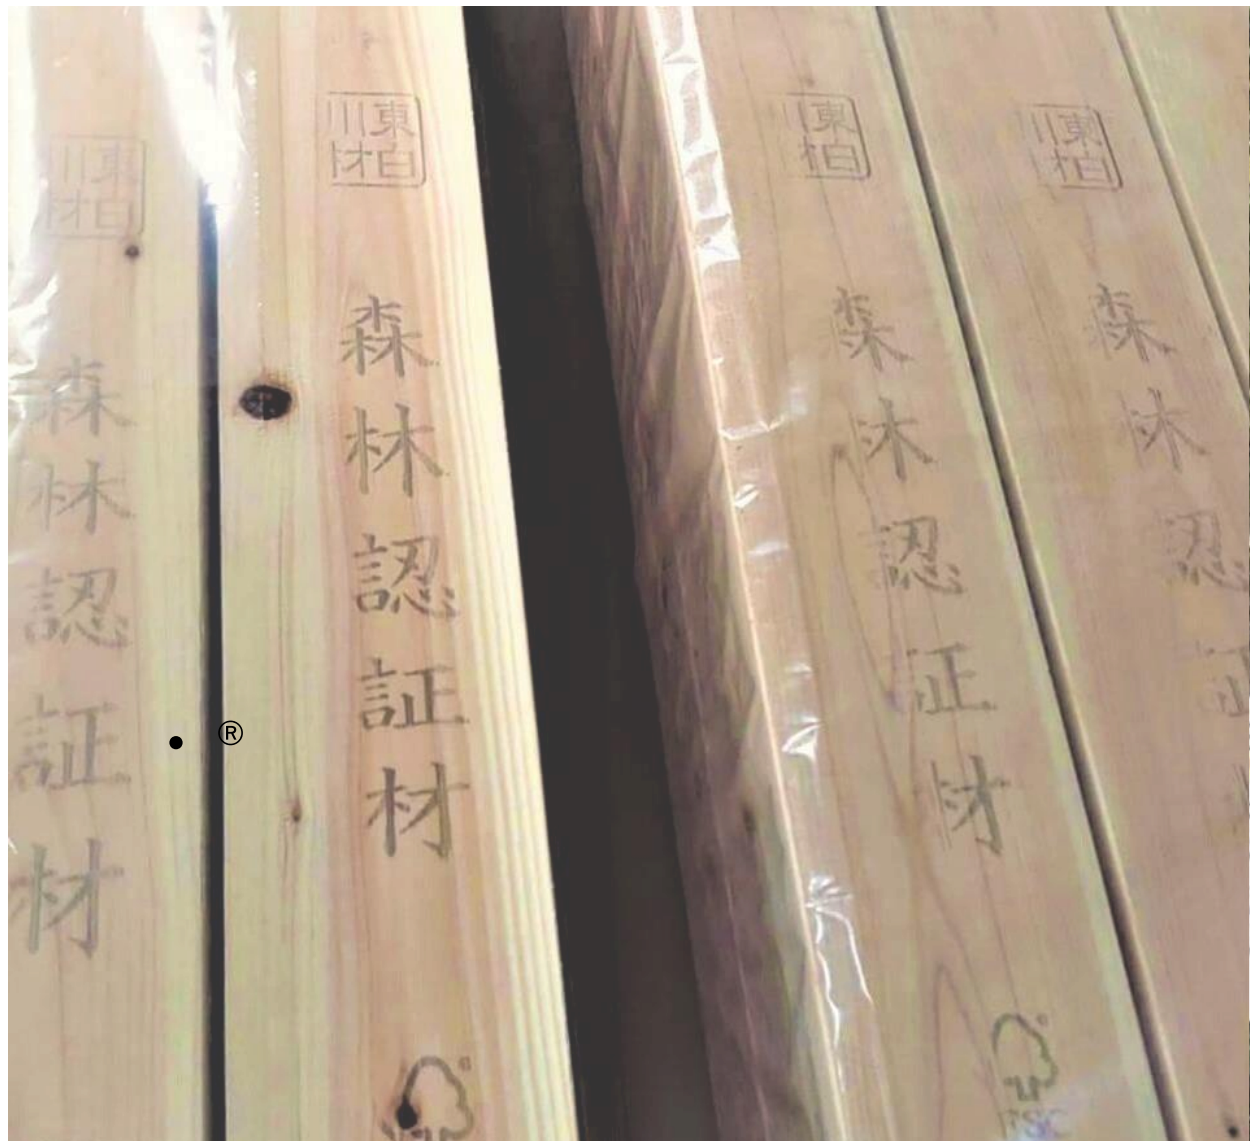 東白
川材
森林認証材
®
東白
川材
森林認証材
東白
川材
森林認証材
FSC
東白
川材
森林認証